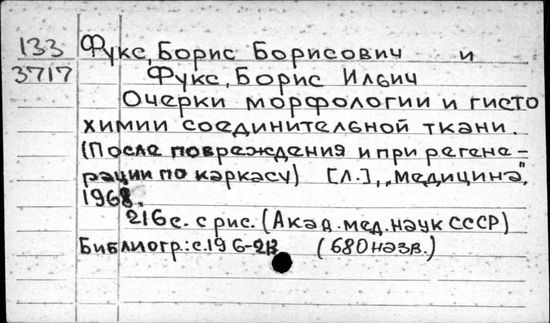 133 Фукс, Борис Борисович и
3717 Фукс, Борис Ильич
Очерки морфологии и гисто
химии соединительной ткани.
(После повреждения и при регене-
рации по каркасу) [Л.], „Медицина",
1968.
216 с. с рис. (Акад. мед. наук СССР)
Библиогр.: с. 196-213 (680 назв.)